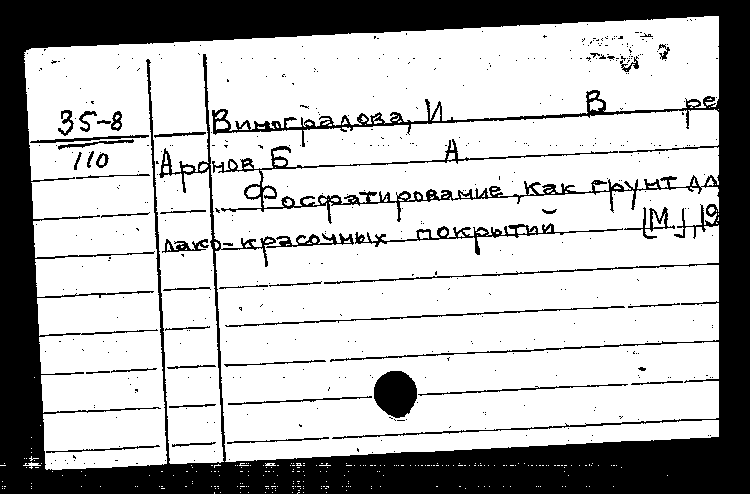 35-8
110
Виноградова, И. В ре
Аронов, Б. А.
... Фосфатирование, как грунт дл
лако-красочных покрытий. [М.], 19